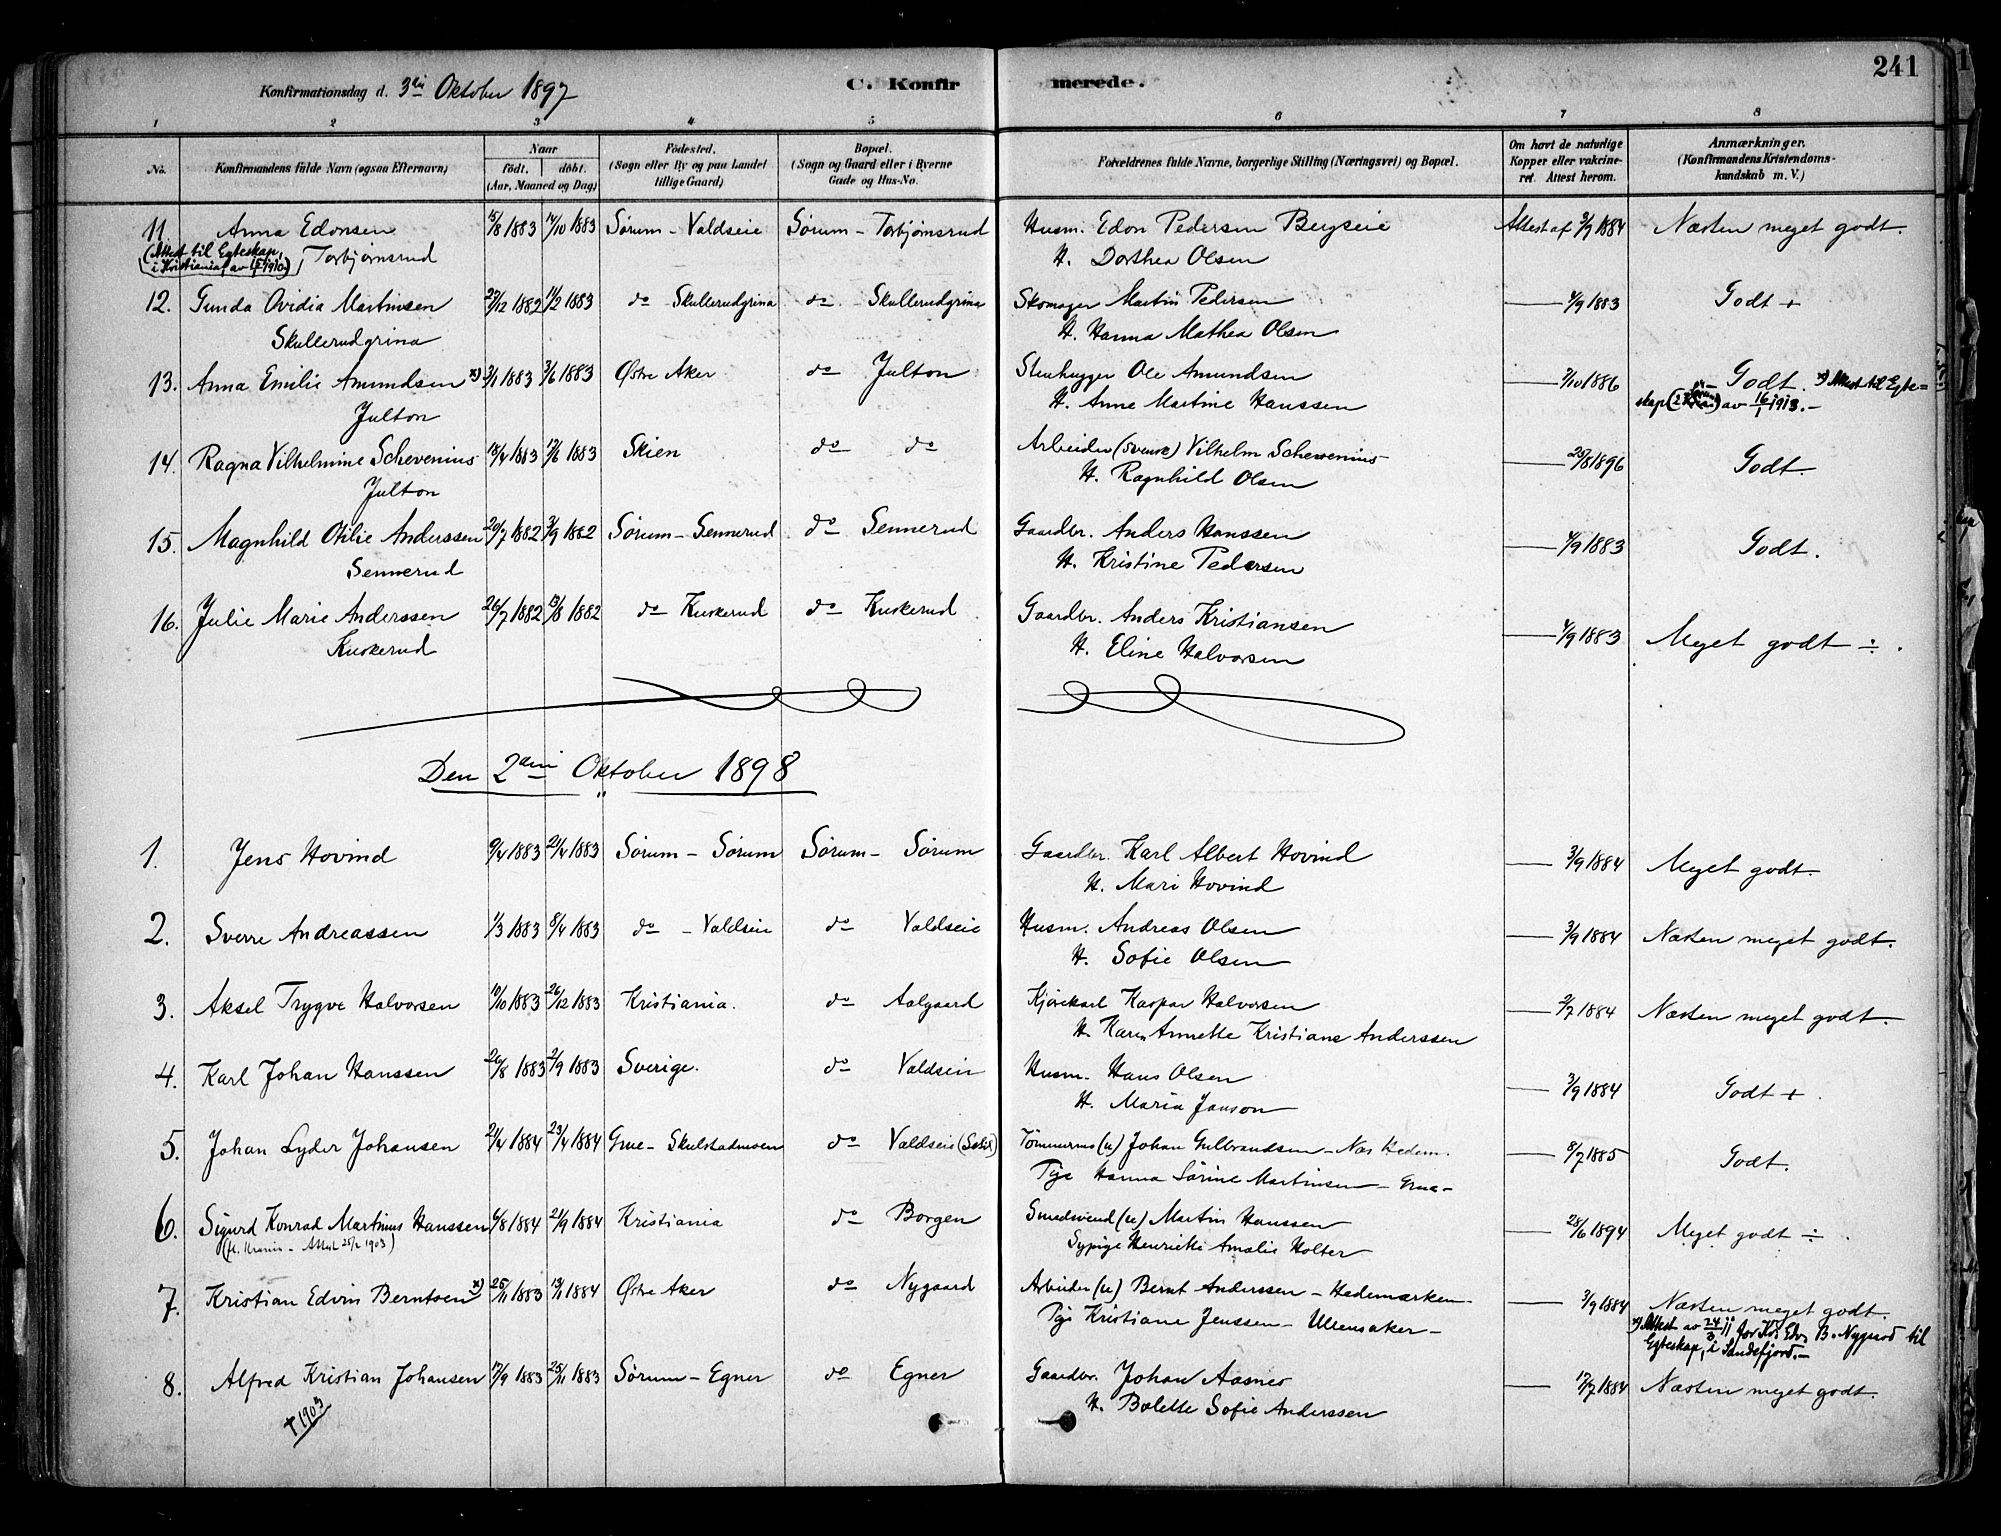 241
Konfirmationsdag d. 3die Oktober 1897
C. Konfirmerede.
1 2 3 4 5 6 7 8
No. Konfirmandens fulde Navn (ogsaa Efternavn) Naar født. døbt. (Aar, Maaned og Dag) Fødested. (Sogn eller By og paa Landet tillige Gaard) Bopæl. (Sogn og Gaard eller i Byerne Gade og Hus-No. Forældrenes fulde Navne, borgerlige Stilling (Næringsvei) og Bopæl. Om havt de naturlige Kopper eller vakcineret. Attest herom. Anmærkninger. (Konfirmandens Kristendomskundskab m. V.)
11. Anna Edonsen 15/8 1883 14/10 1883 Sørum - Valdseie Sørum - Torbjørnsrud Husm. Edon Pedersen Bergseie Attest af 3/9 1884 Næsten meget godt.
(Attest til Egteskap, i Kristiania, av 15/1 1910.) Torbjørnsrud H. Dorthea Olsen
12. Gunda Ovidia Martinsen 27/12 1882 11/2 1883 do Skullerudgrina do Skullerudgrina Skomager Martin Pedersen — 4/9 1883 Godt +
Skullerudgrina H. Hanna Mathea Olsen
13. Anna Emilie Amundsen x) 3/1 1883 3/6 1883 Østre Aker do Julton Stenhugger Ole Amundsen — 7/10 1886 Godt. x) Attest til Egte-
Julton H. Anne Martine Hanssen skap av 16/1 1913.-
14. Ragna Vilhelmine Schevenius 18/4 1883 17/6 1883 Skien do do Arbeider (svensk) Vilhelm Schevenius — 25/8 1896 Godt.
Julton H. Ragnhild Olsen
15. Magnhild Otilie Anderssen 20/7 1882 3/9 1882 Sørum - Sennerud do Sennerud Gaardbr. Anders Hanssen — 4/9 1883 Godt.
Sennerud H. Kristine Pedersen
16. Julie Marie Anderssen 26/7 1882 13/8 1882 do Kuskerud do Kuskerud Gaardbr. Anders Kristiansen — 4/9 1883 Meget godt ÷.
Kuskerud H. Eline Halvorsen
Den 2den Oktober 1898
1. Jens Hovind 9/4 1883 21/4 1883 Sørum - Sørum Sørum - Sørum Gaardbr. Karl Albert Hovind — 3/9 1884 Meget godt.
H. Mari Hovind
2. Sverre Andreassen 1/3 1883 8/4 1883 do - Valdseie do Valdseie Husm. Andreas Olsen — 3/9 1884 Næsten meget godt.
H. Sofie Olsen
3. Aksel Trygve Halvorsen 10/10 1883 26/12 1883 Kristiania. do Aalgaard Kjørekarl Kaspar Halvorsen — 2/7 1884 Næsten meget godt.
H. Karen Annette Kristiane Anderssen
4. Karl Johan Hanssen 26/8 1883 2/9 1883 Sverige. do Valdseie Husm. Hans Olsen — 3/9 1884 Godt +.
H. Maria Janson
5. Johan Lyder Johansen 21/4 1884 23/4 1884 Grue - Skulstadmoen do Valdseie Tømmerms (u) Johan Gulbrandsen - Næs Hedem. — 8/7 1885 Godt.
Pige Hanna Sørine Martinsen - Grue -
6. Sigurd Konrad Martinius Hanssen 6/8 1884 21/9 1884 Kristiania do Borgen Smedsvend (u) Martin Hanssen — 28/6 1894 Meget godt ÷.
Attest 25/2 1903) Sypige Henriette Amalie Holter
7. Kristian Edvin Berntsen x) 25/11 1883 13/1 1884 Østre Aker do Nygaard Arbeider (u) Bernt Anderssen - Hedemarken — 3/9 1884 Næsten meget godt.
Pige Kristiane Jenssen - Ullensaker - x) Attest av 24/3 11 for Kr. Edv. B. Nygaard til
Egteskap, i Sandefjord.-
8. Alfred Kristian Johansen 17/9 1883 25/11 1883 Sørum - Egner do Egner Gaardbr. Johan Aasnes — 17/7 1884 Næsten meget godt.
† 1903 H. Bolette Sofie Anderssen